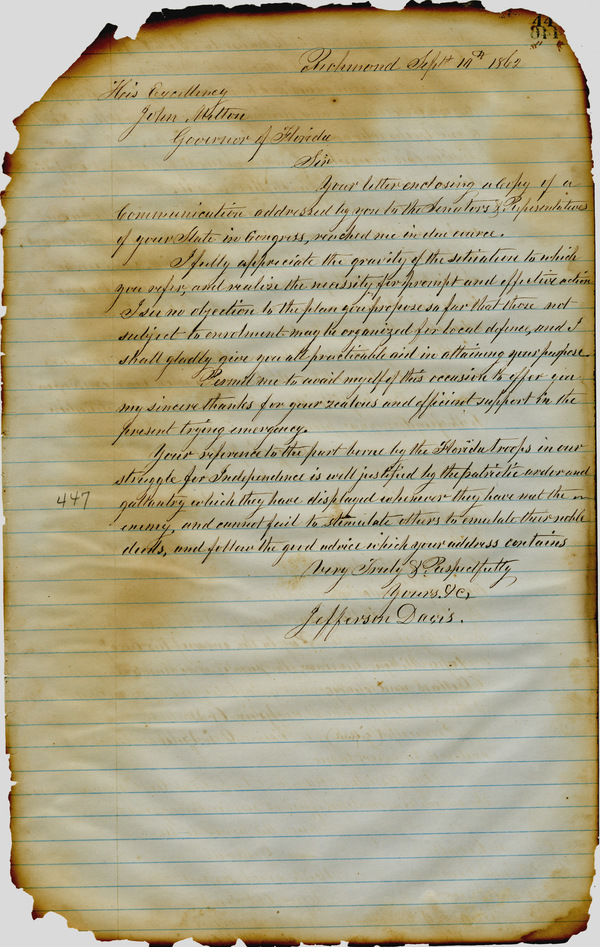 Richmond Sept 19th 1862
His Excellency
John Milton
Governor of Florida
Sir
Your letter enclosing a Copy of a
Communication addressed by you to the Senators & Representatives
of your State in Congress, reached me in due cource.
I fully appreciate the gravity of the setuation to which
you refer, and realize the necessity for prompt and effective action
I see no objection to the plan you propose so far that those not
subject to enrolment may be organized for local defence, and I
shall gladly give you all practicable aid in attaining your purpose.
Permit me to avail myself of this occasion to offer you
my sincere thanks for your zealous and efficient support in the
present trying emergency.
Your reference to the part borne by the Florida troops in our
struggle for Independence is well justified by the patriotic ardor and
447
gallantry which they have displayed whenever they have met the
enemy, and cannot fail to stimulate others to emulate their noble
deeds, and follow the good advice which your address contains
Very Truly & Respectfully
Yours &c,
Jefferson Davis.